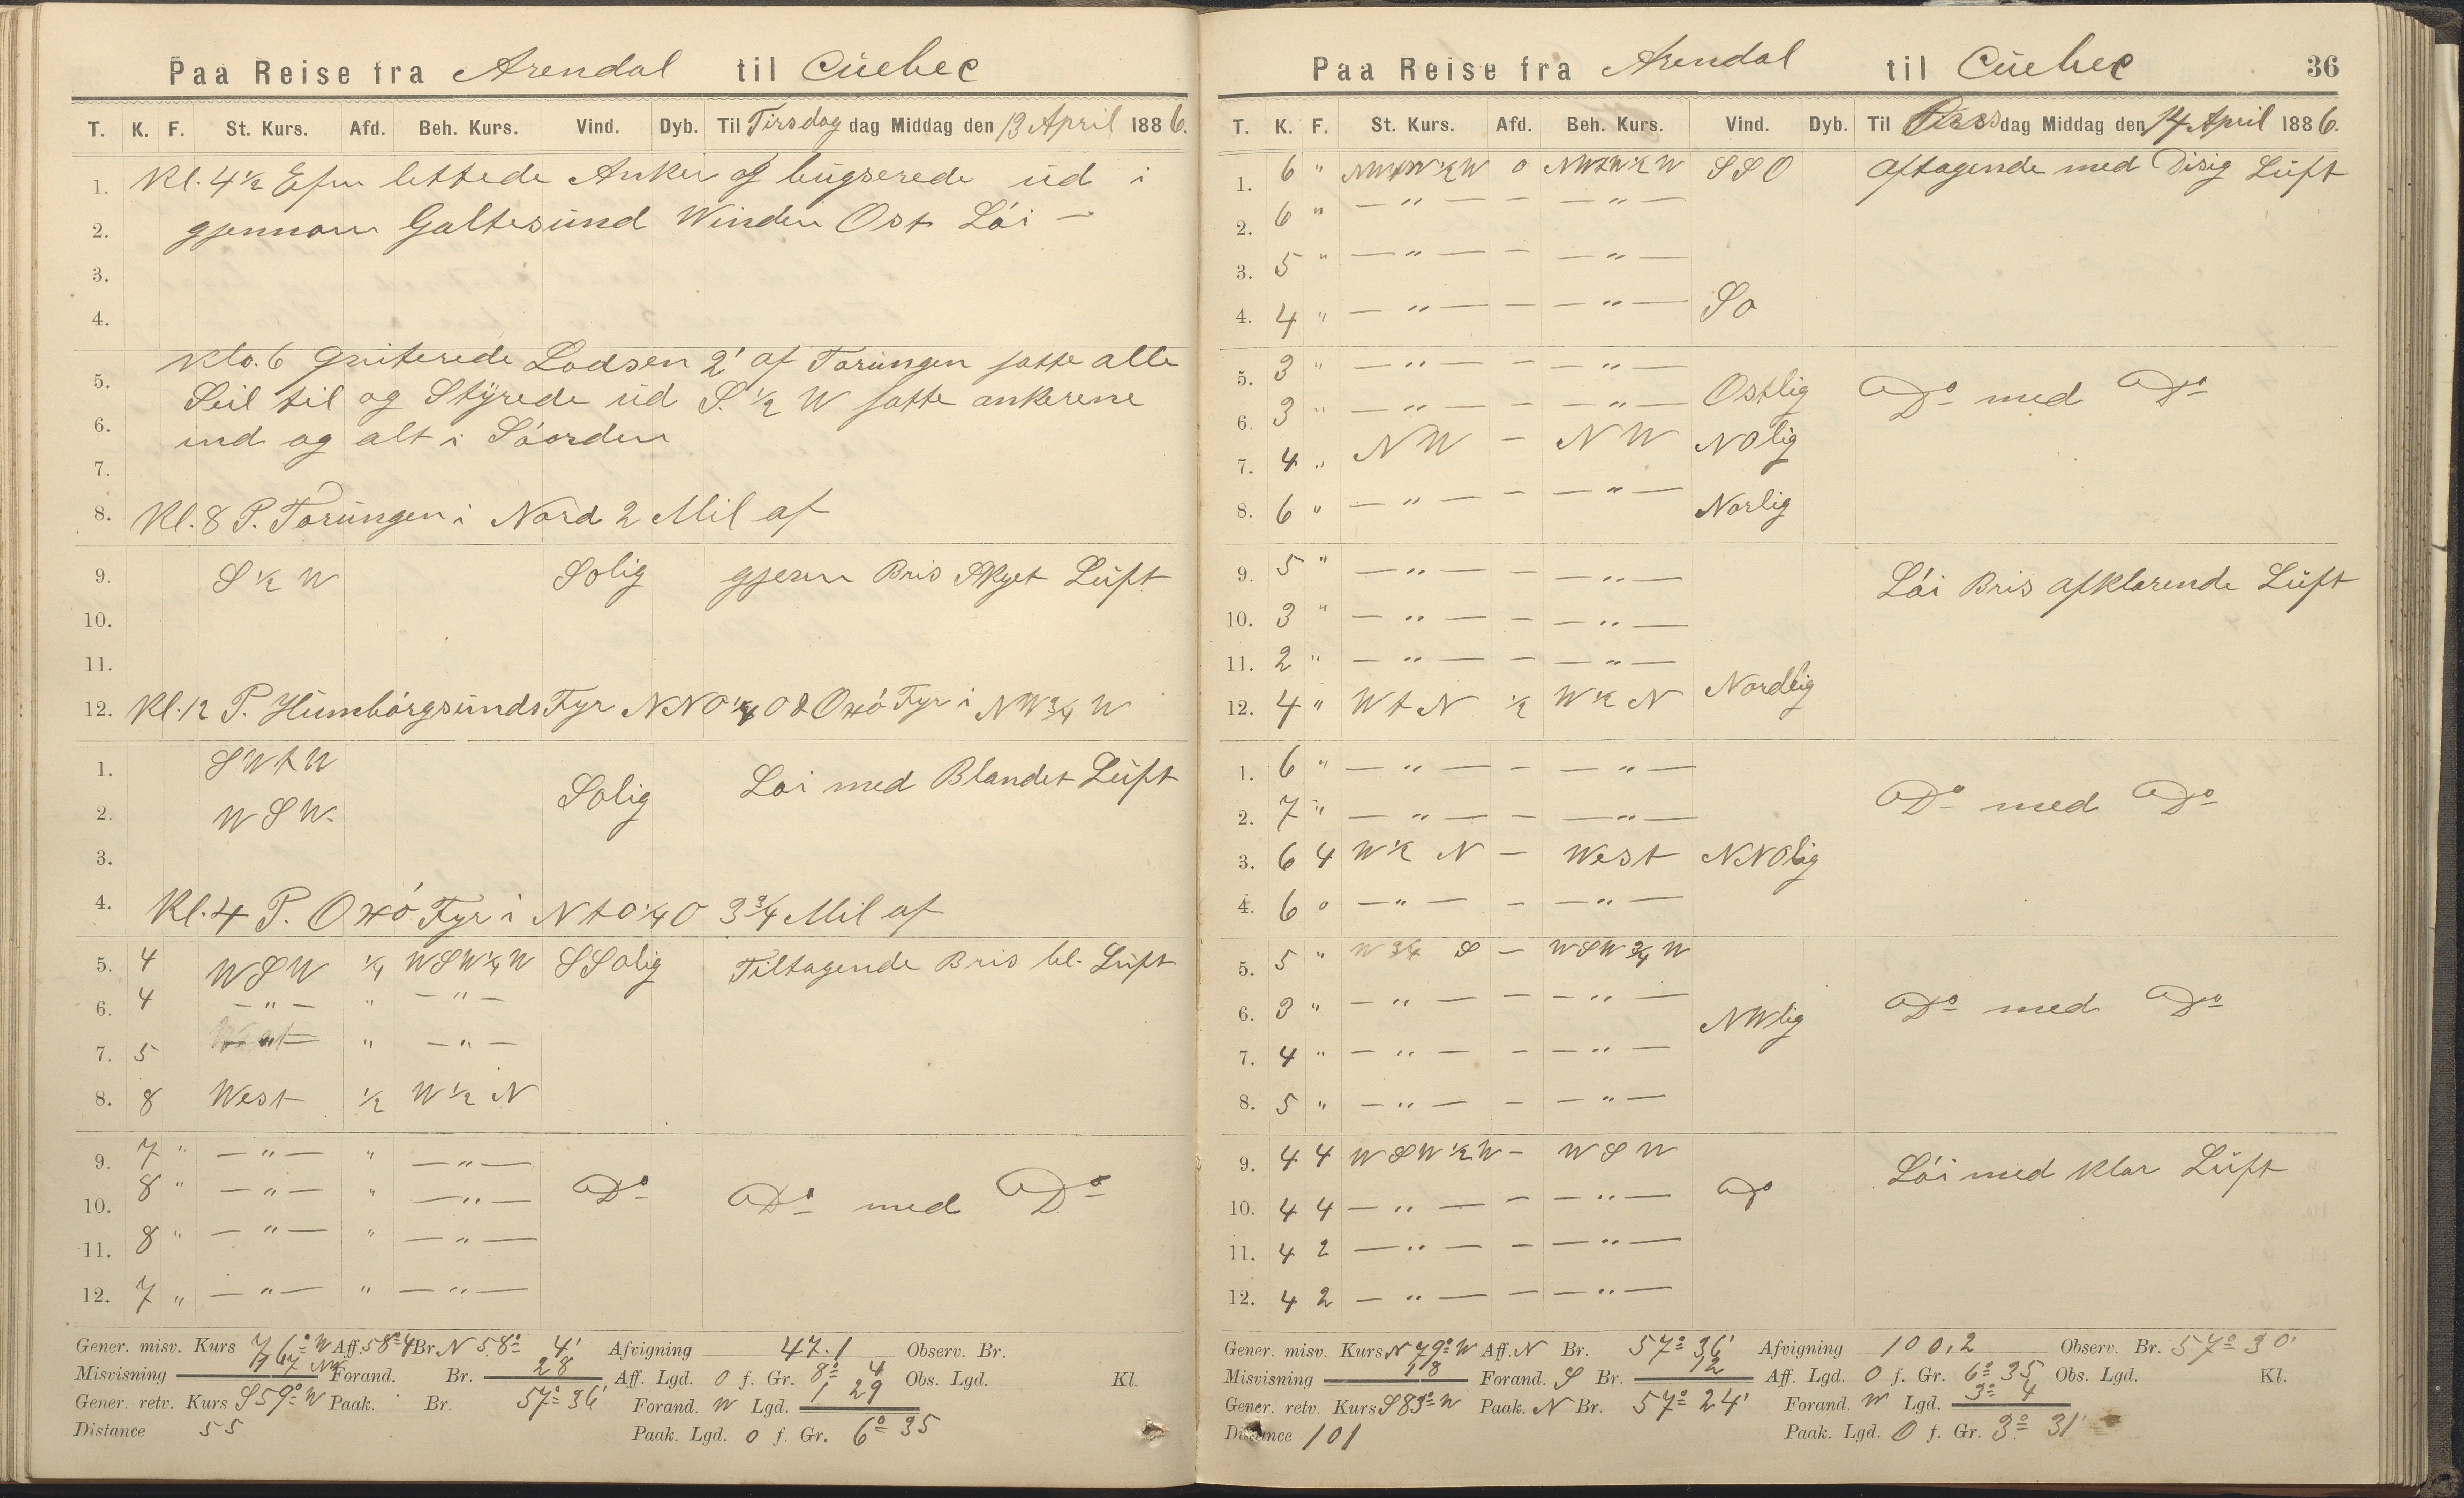 Paa Reise fra Arendal til Cüebec
T. K. F. St. Kurs. Afd. Beh. Kurs. Vind. Dyb. Til Tirsdag dag Middag den 13 April 1886.
1. Kl. 4½ Efm lettede Anker og bügserede üd i
2. gjennom Galtesünd Winden Ost Lói —
3.
4.
Klo. 6 Qviterede Lodsen 2' af Torüngen satte alle
5. Seil til og Stÿrede üd S. ½ W satte ankerene
6. ind og alt i Sóorden
7.
8. Kl. 8 P. Torüngen i Nord 2 Mil af
9. S ½ W Solig gjenn Bris Skyet Lüft
10.
11.
12. Kl. 12 P. Hümbórgsünds Fyr NNO ¼ O & Oxó Fyr i NW ¾ W
1. SWtW Solig Loi med Blandet Lüft
2. WSW.
3.
4. Kl. 4 P. Oxó Fyr i NtO ¼ O 3¾ Mil af
5. 4 WSW ¼ WSW¼W SSolig Tiltagende Bris bl. Lüft
6. 4 — " — " — " —
7. 5 " — " —
8. 8 West ½ W ½ N
9. 7 " — " — " — " —
10. 8 " — " — " — " — Do Do med Do
11. 8 " — " — " — " —
12. 7 " — " — " — " —
Gener. misv. Kurs 76° W Aff. 58° 4 Br N 58° 4' Afvigning 47.1 Observ. Br.
Misvisning Forand. Br. 28 Aff. Lgd. O f. Gr. 8° 4 Obs. Lgd. Kl.
Gener. retv. Kurs S59° W Paak. Br. 57° 36' Forand. W Lgd. 1 29
Distance 55 Paak. Lgd. O f. Gr. 6° 35
Paa Reise fra Arendal til Cüebec 36
T. K. F. St. Kurs. Afd. Beh. Kurs. Vind. Dyb. Til dag Middag den 14 April 1886.
1. 6 " NWtW½W 0 NWtW½W SSO Aftagende med Disig Lüft
2. 6 " — " — — — " —
3. 5 " — " — — — " —
4. 4 " — " — — — " — SO
5. 3 " — " — — — " —
6. 3 " — " — — — " — Ostlig Do med Do
7. 4 " NW — NW NOlig
8. 6 " — " — — — " — Norlig
9. 5 " — " — — — " — Lói Bris afklarende Lüft
10. 3 " — " — — — " —
11. 2 " — " — — — " —
12. 4 " WtN ½ W½N Nordlig
1. 6 " — " — — — " —
2. 7 " — " — — — " — Do med Do
3. 6 4 W½ N — West NNOlig
4. 6 0 — " — — — " —
5. 5 " W ¾ S — WSW ¾ W
6. 3 " — " — — — " — NWlig Do med Do
7. 4 " — " — — — " —
8. 5 " — " — — — " —
9. 4 4 WSW½W — WSW Lói med klar Lüft
10. 4 4 — " — — — " — Do
11. 4 2 — " — — — " —
12. 4 2 — " — — — " —
Gener. misv. Kurs N 79° W Aff. N Br. 57° 36' Afvigning 100,2 Observ. Br. 57° 30'
Misvisning 18 Forand. S Br. 12 Aff. Lgd. O f. Gr. 6° 35 Obs. Lgd. Kl.
Gener. retv. Kurs S83° W Paak. N Br. 57° 24' Forand. W Lgd. 3° 4
Distance 101 Paak. Lgd. O f. Gr. 3° 31'